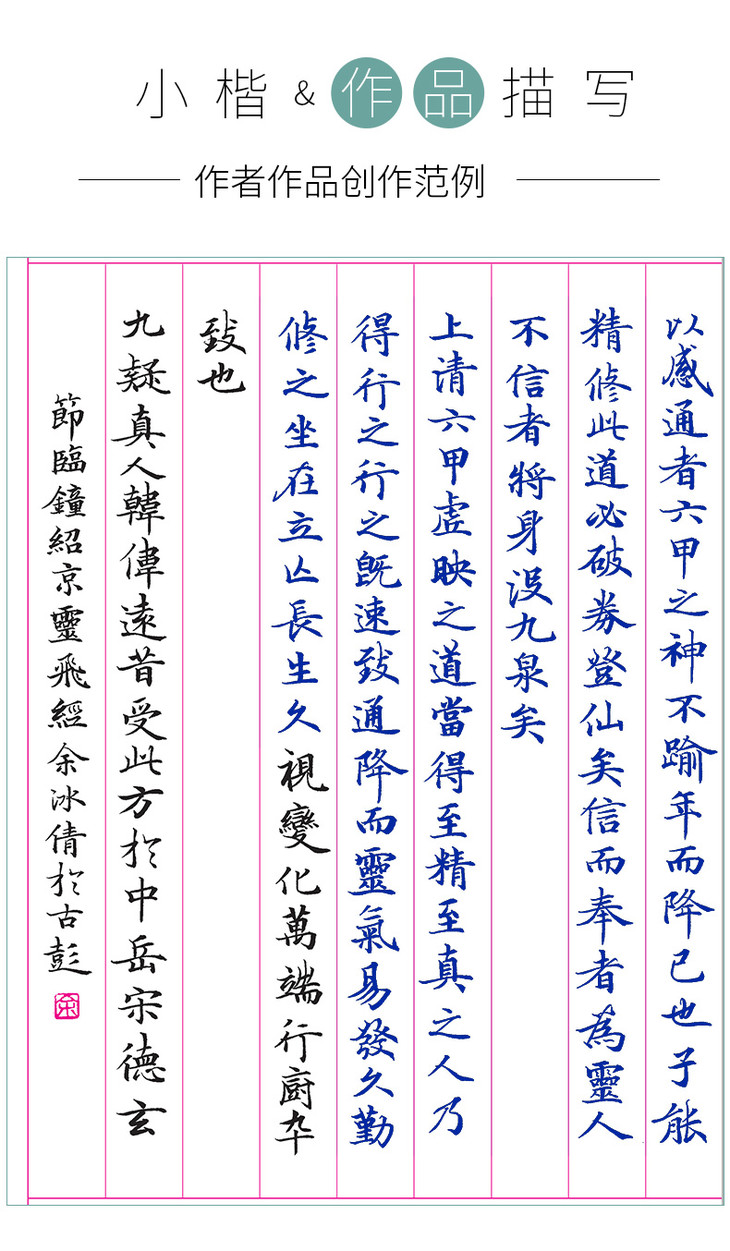 小楷&作品描写
作者作品创作范例
以感通者六甲之神不踰年而降已也子能
精修此道必破券登仙矣信而奉者為靈人
不信者將身没九泉矣
上清六甲虚映之道當得至精至真之人乃
得行之行之既速致通降而靈氣易發久勤
修之坐在立亾長生久視變化萬端行厨卒
致也
九疑真人韓偉遠昔受此方於中岳宋德玄
節臨鐘紹京靈飛經余冰倩於古彭
余